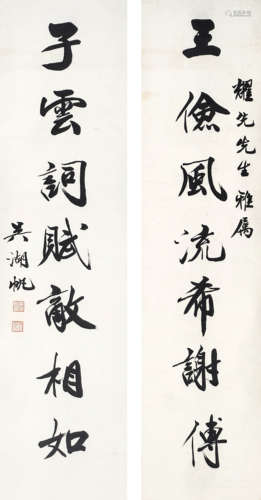 王儉風流希謝傅
耀先先生雅屬
子雲詞賦敵相如
吳湖帆